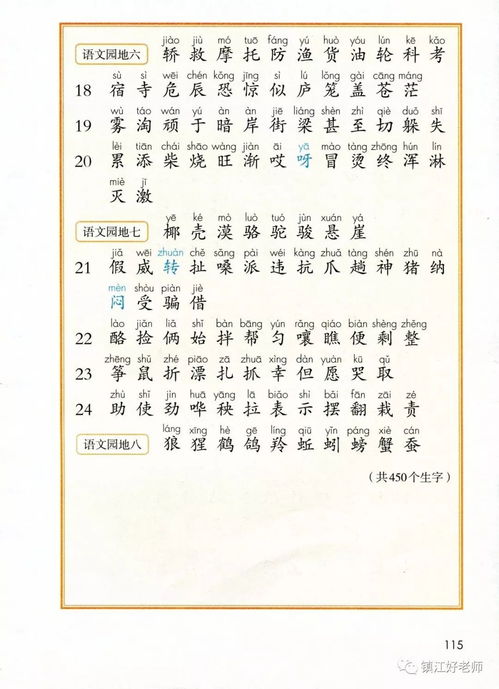 jiào jiù mó tuō fáng yú huò yóu lún kē kǎo
语文园地六 轿 救 摩 托 防 渔 货 油 轮 科 考
sù sì wēi chén kǒng jīng sì lú lóng gài cāng máng
18 宿 寺 危 辰 恐 惊 似 庐 笼 盖 苍 茫
wù táo wán yú àn àn jiē liáng shèn zhì qiè duǒ shī
19 雾 淘 顽 于 暗 岸 街 梁 甚 至 切 躲 失
lèi tiān chái shāo wàng jiàn āi yā mào tàng zhōng hún lín
20 累 添 柴 烧 旺 渐 哎 呀 冒 烫 终 浑 淋
miè jī
灭 激
yē ké mò luò tuó jùn xuán yá
语文园地七 椰 壳 漠 骆 驼 骏 悬 崖
jiǎ wēi zhuàn chě sǎng pài wéi kàng zhuǎ tàng shén zhū nà
21 假 威 转 扯 嗓 派 违 抗 爪 趟 神 猪 纳
mèn shòu piàn jiè
闷 受 骗 借
lào jiǎn liǎ shǐ bàn bāng yún rǎng qiáo biàn shèng zhěng
22 酪 捡 俩 始 拌 帮 匀 嚷 瞧 便 剩 整
zhēng shǔ zhé piāo zā zhuā xìng dàn yuàn kū qǔ
23 筝 鼠 折 漂 扎 抓 幸 但 愿 哭 取
zhù shǐ jìn huā yāng lā biǎo shì bǎi fān zāi zé
24 助 使 劲 哗 秧 拉 表 示 摆 翻 栽 责
láng xīng hè gē líng qiū yǐn páng xiè cán
语文园地八 狼 猩 鹤 鸽 羚 蚯 蚓 螃 蟹 蚕
(共450个生字)
115
镇江好老师